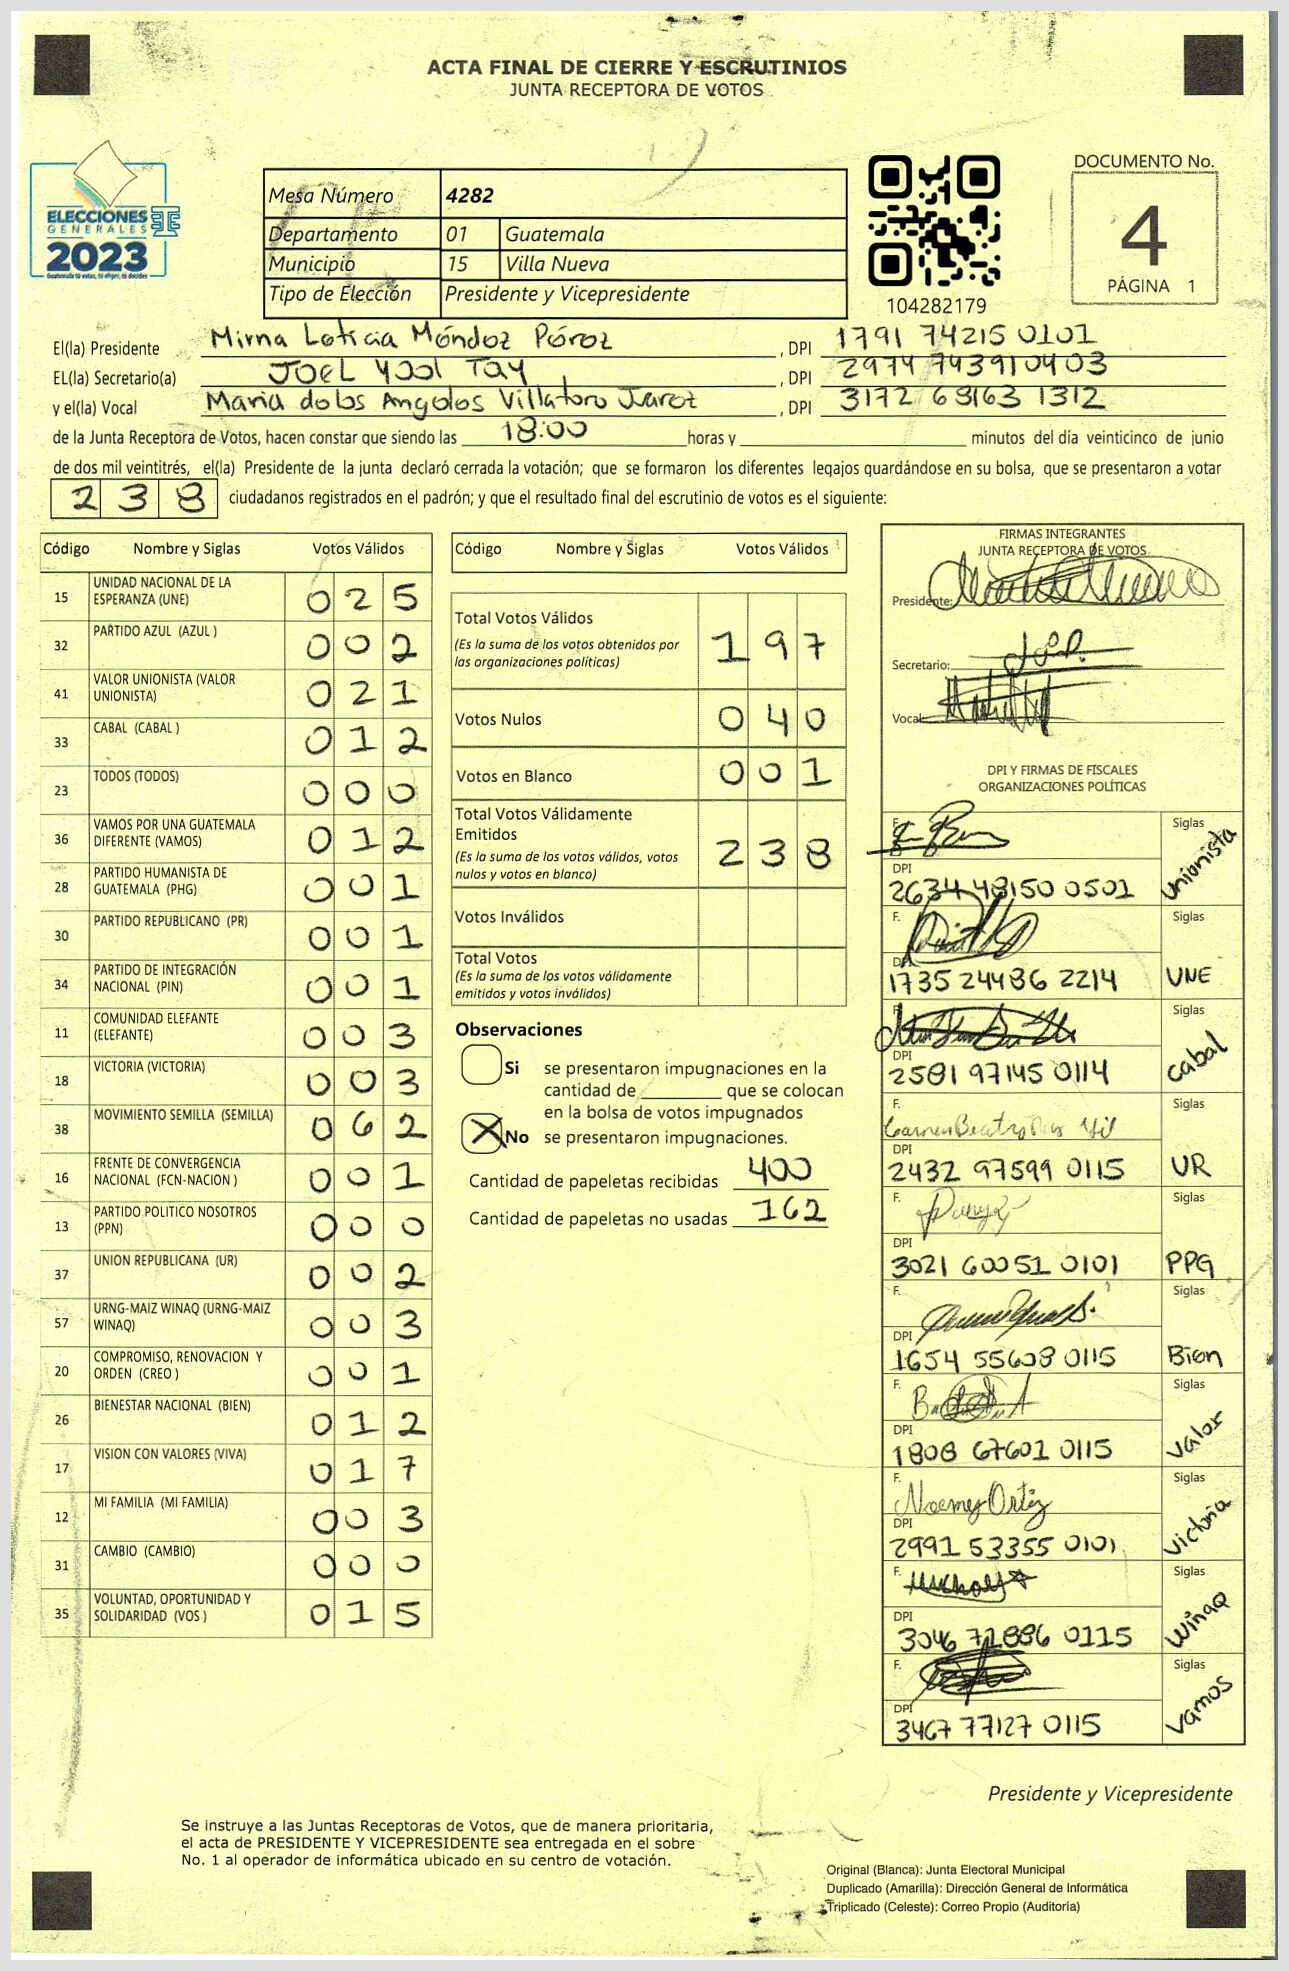 ACTA FINAL DE CIERRE Y ESCRUTINIOS
JUNTA RECEPTORA DE VOTOS
ELECCIONES
GENERALES
2023
Mesa Número 4282
Departamento 01 Guatemala
Municipio 15 Villa Nueva
Tipo de Elección Presidente y Vicepresidente
104282179
DOCUMENTO No.
4
PÁGINA 1
El(la) Presidente Mirna Leticia Méndez Pérez, DPI 1791 74215 0101
EL(la) Secretario(a) JOEL YOOL TAY, DPI 2974 74391 0403
y el(la) Vocal Maria de los Angeles Villatoro Juarez, DPI 3172 68163 1312
de la Junta Receptora de Votos, hacen constar que siendo las 18:00 horas y minutos del día veinticinco de junio
de dos mil veintitrés, el(la) Presidente de la junta declaró cerrada la votación; que se formaron los diferentes legajos guardándose en su bolsa, que se presentaron a votar
238 ciudadanos registrados en el padrón; y que el resultado final del escrutinio de votos es el siguiente:
Código Nombre y Siglas Votos Válidos
15 UNIDAD NACIONAL DE LA ESPERANZA (UNE) 025
32 PARTIDO AZUL (AZUL ) 002
41 VALOR UNIONISTA (VALOR UNIONISTA) 021
33 CABAL (CABAL ) 012
23 TODOS (TODOS) 000
36 VAMOS POR UNA GUATEMALA DIFERENTE (VAMOS) 012
28 PARTIDO HUMANISTA DE GUATEMALA (PHG) 001
30 PARTIDO REPUBLICANO (PR) 001
34 PARTIDO DE INTEGRACIÓN NACIONAL (PIN) 001
11 COMUNIDAD ELEFANTE (ELEFANTE) 003
18 VICTORIA (VICTORIA) 003
38 MOVIMIENTO SEMILLA (SEMILLA) 062
16 FRENTE DE CONVERGENCIA NACIONAL (FCN-NACION ) 001
13 PARTIDO POLITICO NOSOTROS (PPN) 000
37 UNION REPUBLICANA (UR) 002
57 URNG-MAIZ WINAQ (URNG-MAIZ WINAQ) 003
20 COMPROMISO, RENOVACION Y ORDEN (CREO ) 001
26 BIENESTAR NACIONAL (BIEN) 012
17 VISION CON VALORES (VIVA) 017
12 MI FAMILIA (MI FAMILIA) 003
31 CAMBIO (CAMBIO) 000
35 VOLUNTAD, OPORTUNIDAD Y SOLIDARIDAD (VOS ) 015
Código Nombre y Siglas Votos Válidos
Total Votos Válidos 197
(Es la suma de los votos obtenidos por
las organizaciones políticas)
Votos Nulos 040
Votos en Blanco 001
Total Votos Válidamente
Emitidos 238
(Es la suma de los votos válidos, votos
nulos y votos en blanco)
Votos Inválidos
Total Votos
(Es la suma de los votos válidamente
emitidos y votos inválidos)
Observaciones
Si se presentaron impugnaciones en la
cantidad de que se colocan
en la bolsa de votos impugnados
X No se presentaron impugnaciones.
Cantidad de papeletas recibidas 400
Cantidad de papeletas no usadas 162
FIRMAS INTEGRANTES
JUNTA RECEPTORA DE VOTOS
Presidente:
Secretario:
Vocal:
DPI Y FIRMAS DE FISCALES
ORGANIZACIONES POLÍTICAS
F. Siglas
DPI
2634 48150 0501 Unionista
F. Siglas
DPI
1735 24486 2214 UNE
Siglas
DPI
2581 97145 0114 Cabal
F. Siglas
DPI
2432 97599 0115 UR
F. Siglas
DPI
3021 60051 0101 PPG
F. Siglas
DPI
1654 55608 0115 Bien
F. Siglas
DPI
1808 67601 0115 Valor
F. Noemy Ortiz Siglas
DPI
2991 53355 0101 Victoria
F. Siglas
DPI
3046 71886 0115 Winaq
F. Siglas
DPI
3467 77127 0115 Vamos
Presidente y Vicepresidente
Se instruye a las Juntas Receptoras de Votos, que de manera prioritaria,
el acta de PRESIDENTE Y VICEPRESIDENTE sea entregada en el sobre
No. 1 al operador de informática ubicado en su centro de votación.
Original (Blanca): Junta Electoral Municipal
Duplicado (Amarilla): Dirección General de Informática
Triplicado (Celeste): Correo Propio (Auditoría)